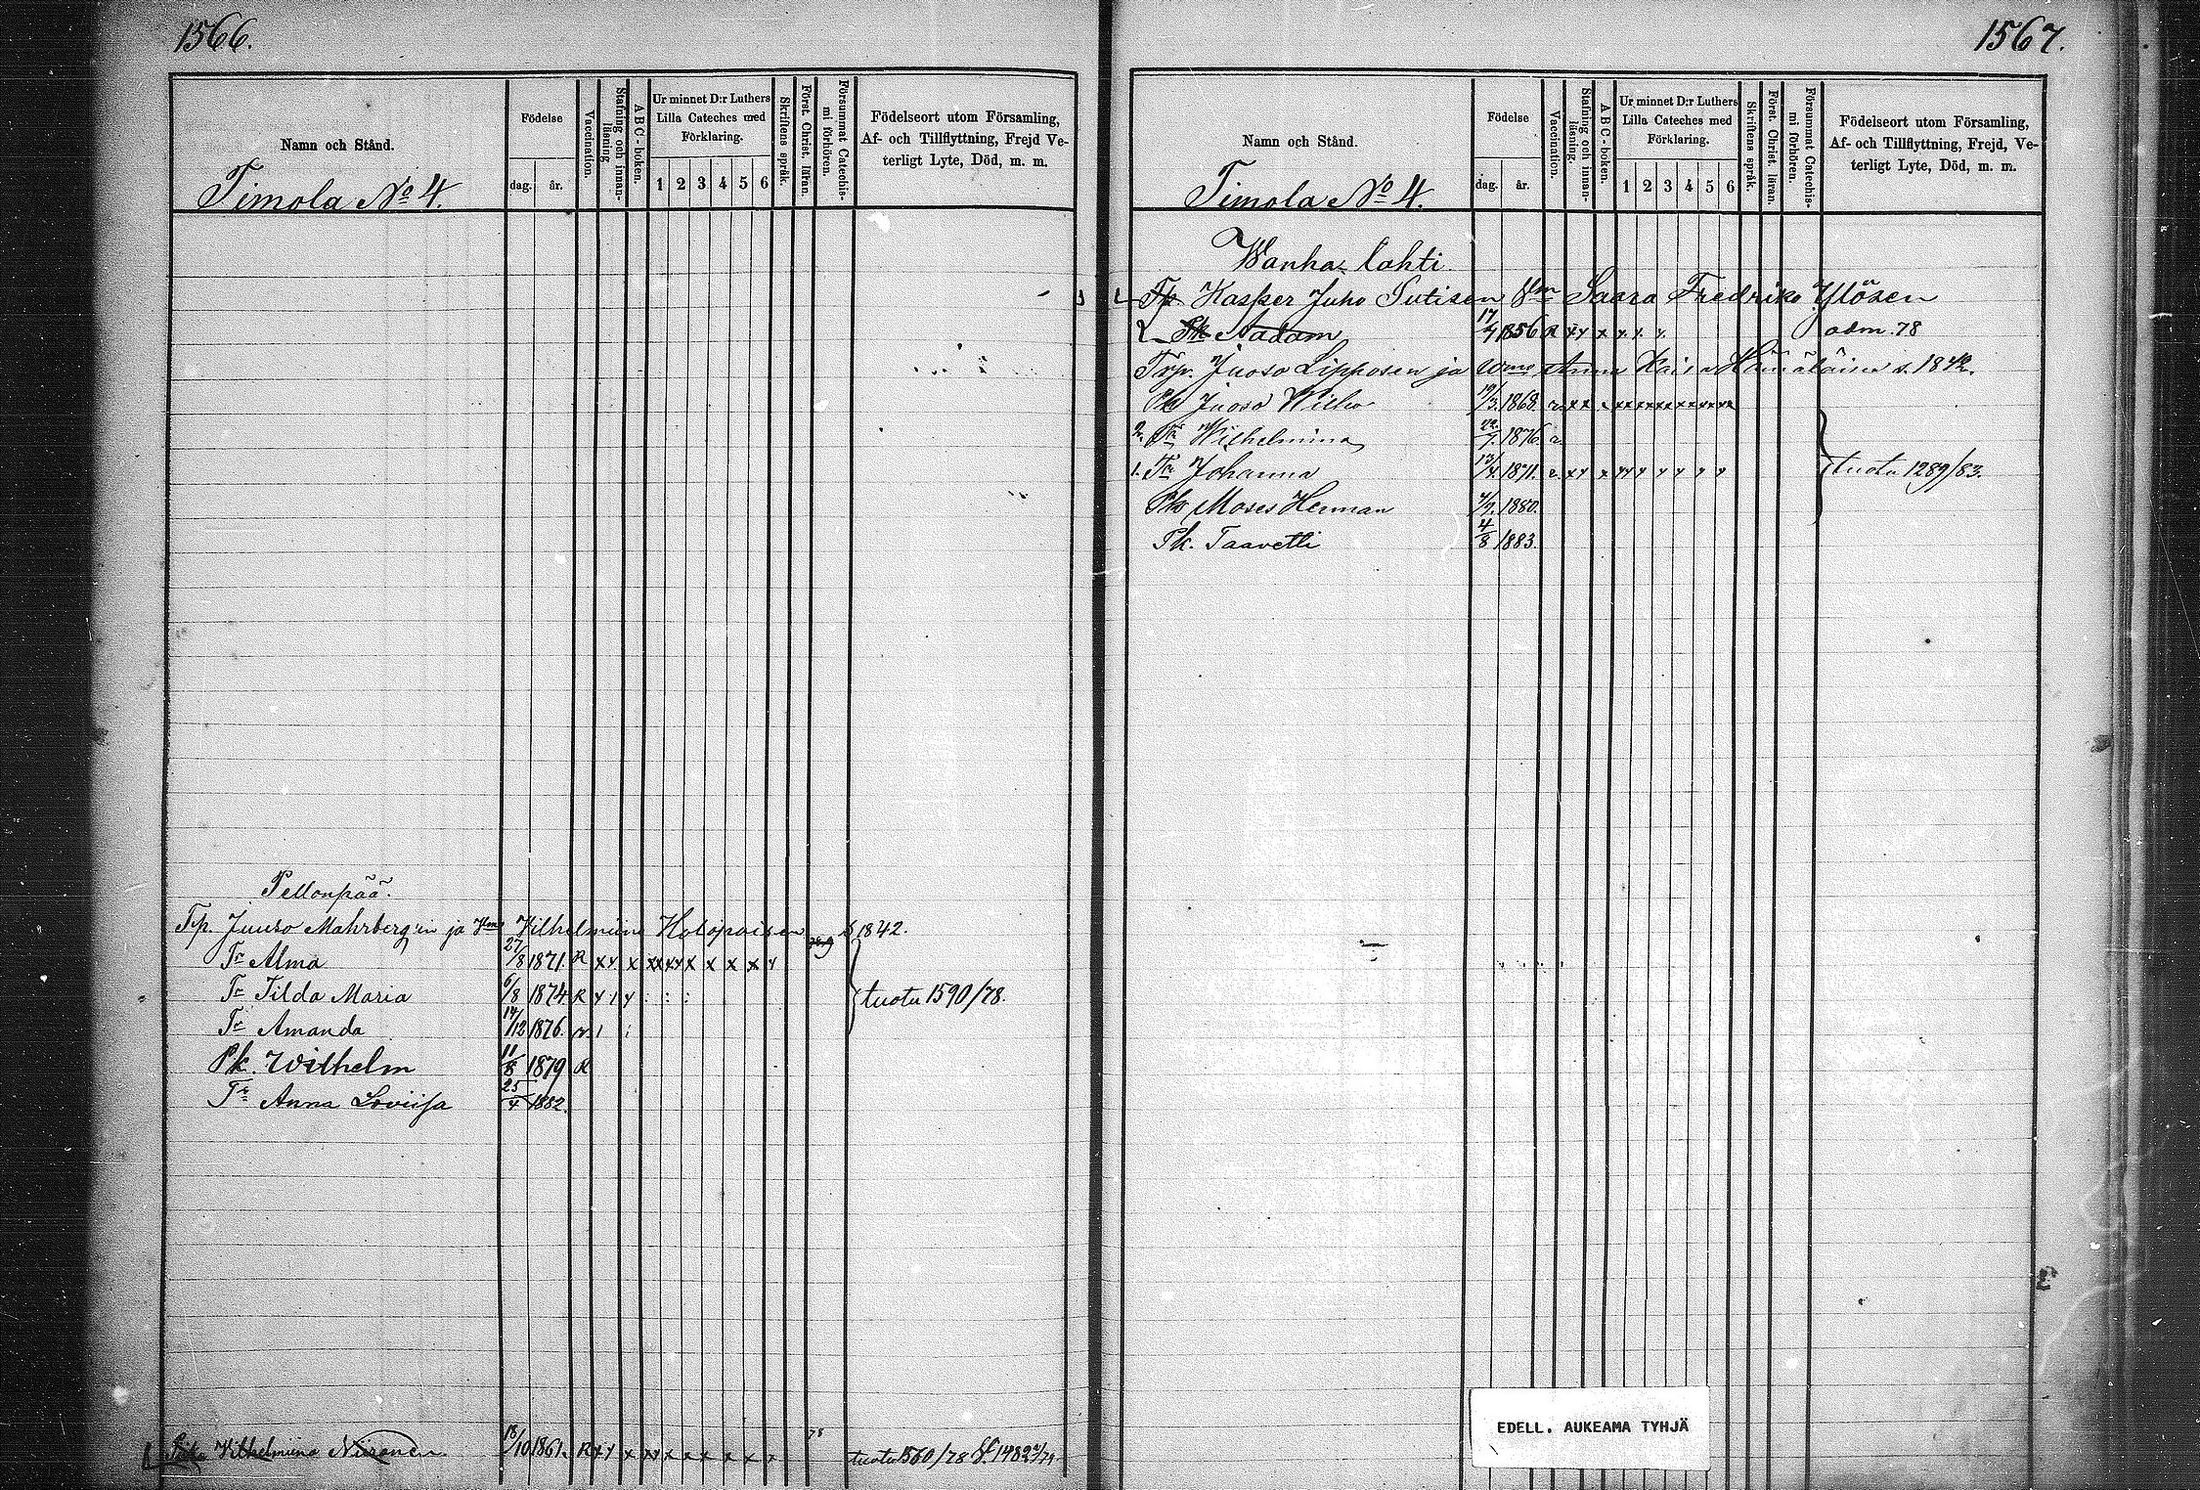 1566.
Namn och Stånd.
Födelse
dag. år.
Vaccination.
Stafning och innan-
läsning
ABC-boken.
Ur minnet D:r Luthers
Lilla Cateches med
Förklaring.
1 2 3 4 5 6
Skriftens språk.
Först. Christ. läran.
Försummat Catechis-
mi förhören.
Födelseort utom Församling,
Af- och Tillflyttning, Frejd Ve-
terligt Lyte, Död, m. m.
Timola No 4.
Pellonpää.
Tp. Juuso Mahrberg:in ja Vmo Vilhelmiine Holopaisen s 1842.
Tr Alma 27/8 1871. R x y x xx xy x x x x y
Tr Tilda Maria 6/8 1874 R y 1 y tuotu 1590/78.
Tr Amanda 14/12 1876.
Pk. Wilhelm 11/8 1879 R
Tr Anna Loviisa 25/4 1882.
Vilhelmiina Niiranen 18/10 1861. R x y x xy x x x x x 78 tuotu 1560/78 1482
1567.
Namn och Stånd.
Födelse
dag. år.
Vaccination.
Stafning och innan-
läsning.
ABC-boken.
Ur minnet D:r Luthers
Lilla Cateches med
Förklaring.
1 2 3 4 5 6
Skriftens språk.
Först. Christ. läran.
Försummat Catechis-
mi förhören.
Födelseort utom Församling,
Af- och Tillflyttning, Frejd, Ve-
terligt Lyte, Död, m. m.
Timola No 4.
Wanha-lahti
Tp Kasper Juho Sutisen Vm Saara Fredrika Ylösen
Pk Aadam 17/4 1856 R xy x y y. y. adm. 78
Trp. Juoso Lipposen ja Wmo Anna Kaisa Hämäläinen s. 1842.
Pk Juoso Wilho 19/3. 1868.
2. Tr Wilhelmina 22/7. 1876.
1. Tr Johanna 13/4. 1871. tuotu 1289/83.
Pk Moses Herman 1880.
Pk. Taavetti 4/8 1883.
EDELL. AUKEAMA TYHJÄ